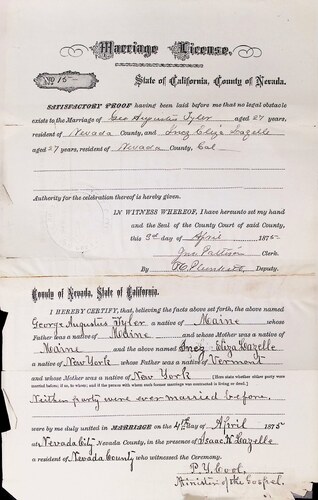 Marriage License.
No. 15
State of California, County of Nevada.
SATISFACTORY PROOF having been laid before me that no legal obstacle
exists to the Marriage of Geo Augustus Tyler aged 27 years,
resident of Nevada County, and Inez Eliza Lazelle
aged 27 years, resident of Nevada County, Cal
Authority for the celebration thereof is hereby given.
IN WITNESS WHEREOF, I have hereunto set my hand
and the Seal of the County Court of said County,
this 3rd day of April 1875
Jno. Pattison Clerk.
By Deputy.
County of Nevada, State of California.
I HEREBY CERTIFY, that, believing the facts above set forth, the above named
George Augustus Tyler a native of Maine whose
Father was a native of Maine and whose Mother was a native of
Maine and the above named Inez Eliza Lazelle
a native of New York whose Father was a native of Vermont
and whose Mother was a native of New York [Here state whether either party were
married before, if so, to whom; and if the person with whom such former marriage was contracted is living or dead.]
Neither party were ever married before.
were by me duly united in MARRIAGE on the 4th Day of April 1875
at Nevada City Nevada County, in the presence of Isaac W Lazelle
a resident of Nevada County who witnessed the Ceremony.
P. Y. Cool,
Minister of the Gospel.